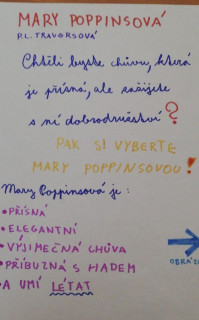 MARY POPPINSOVÁ
P.L. TRAVERSOVÁ
Chtěli byste chůvu, která
je přísná, ale zažijete
s ní dobrodružství?
PAK SI VYBERTE
MARY POPPINSOVOU!
Mary Poppinsová je:
• PŘÍSNÁ
• ELEGANTNÍ
• VÝJIMEČNÁ CHŮVA
• PŘÍBUZNÁ S HADEM
• A UMÍ LÉTAT